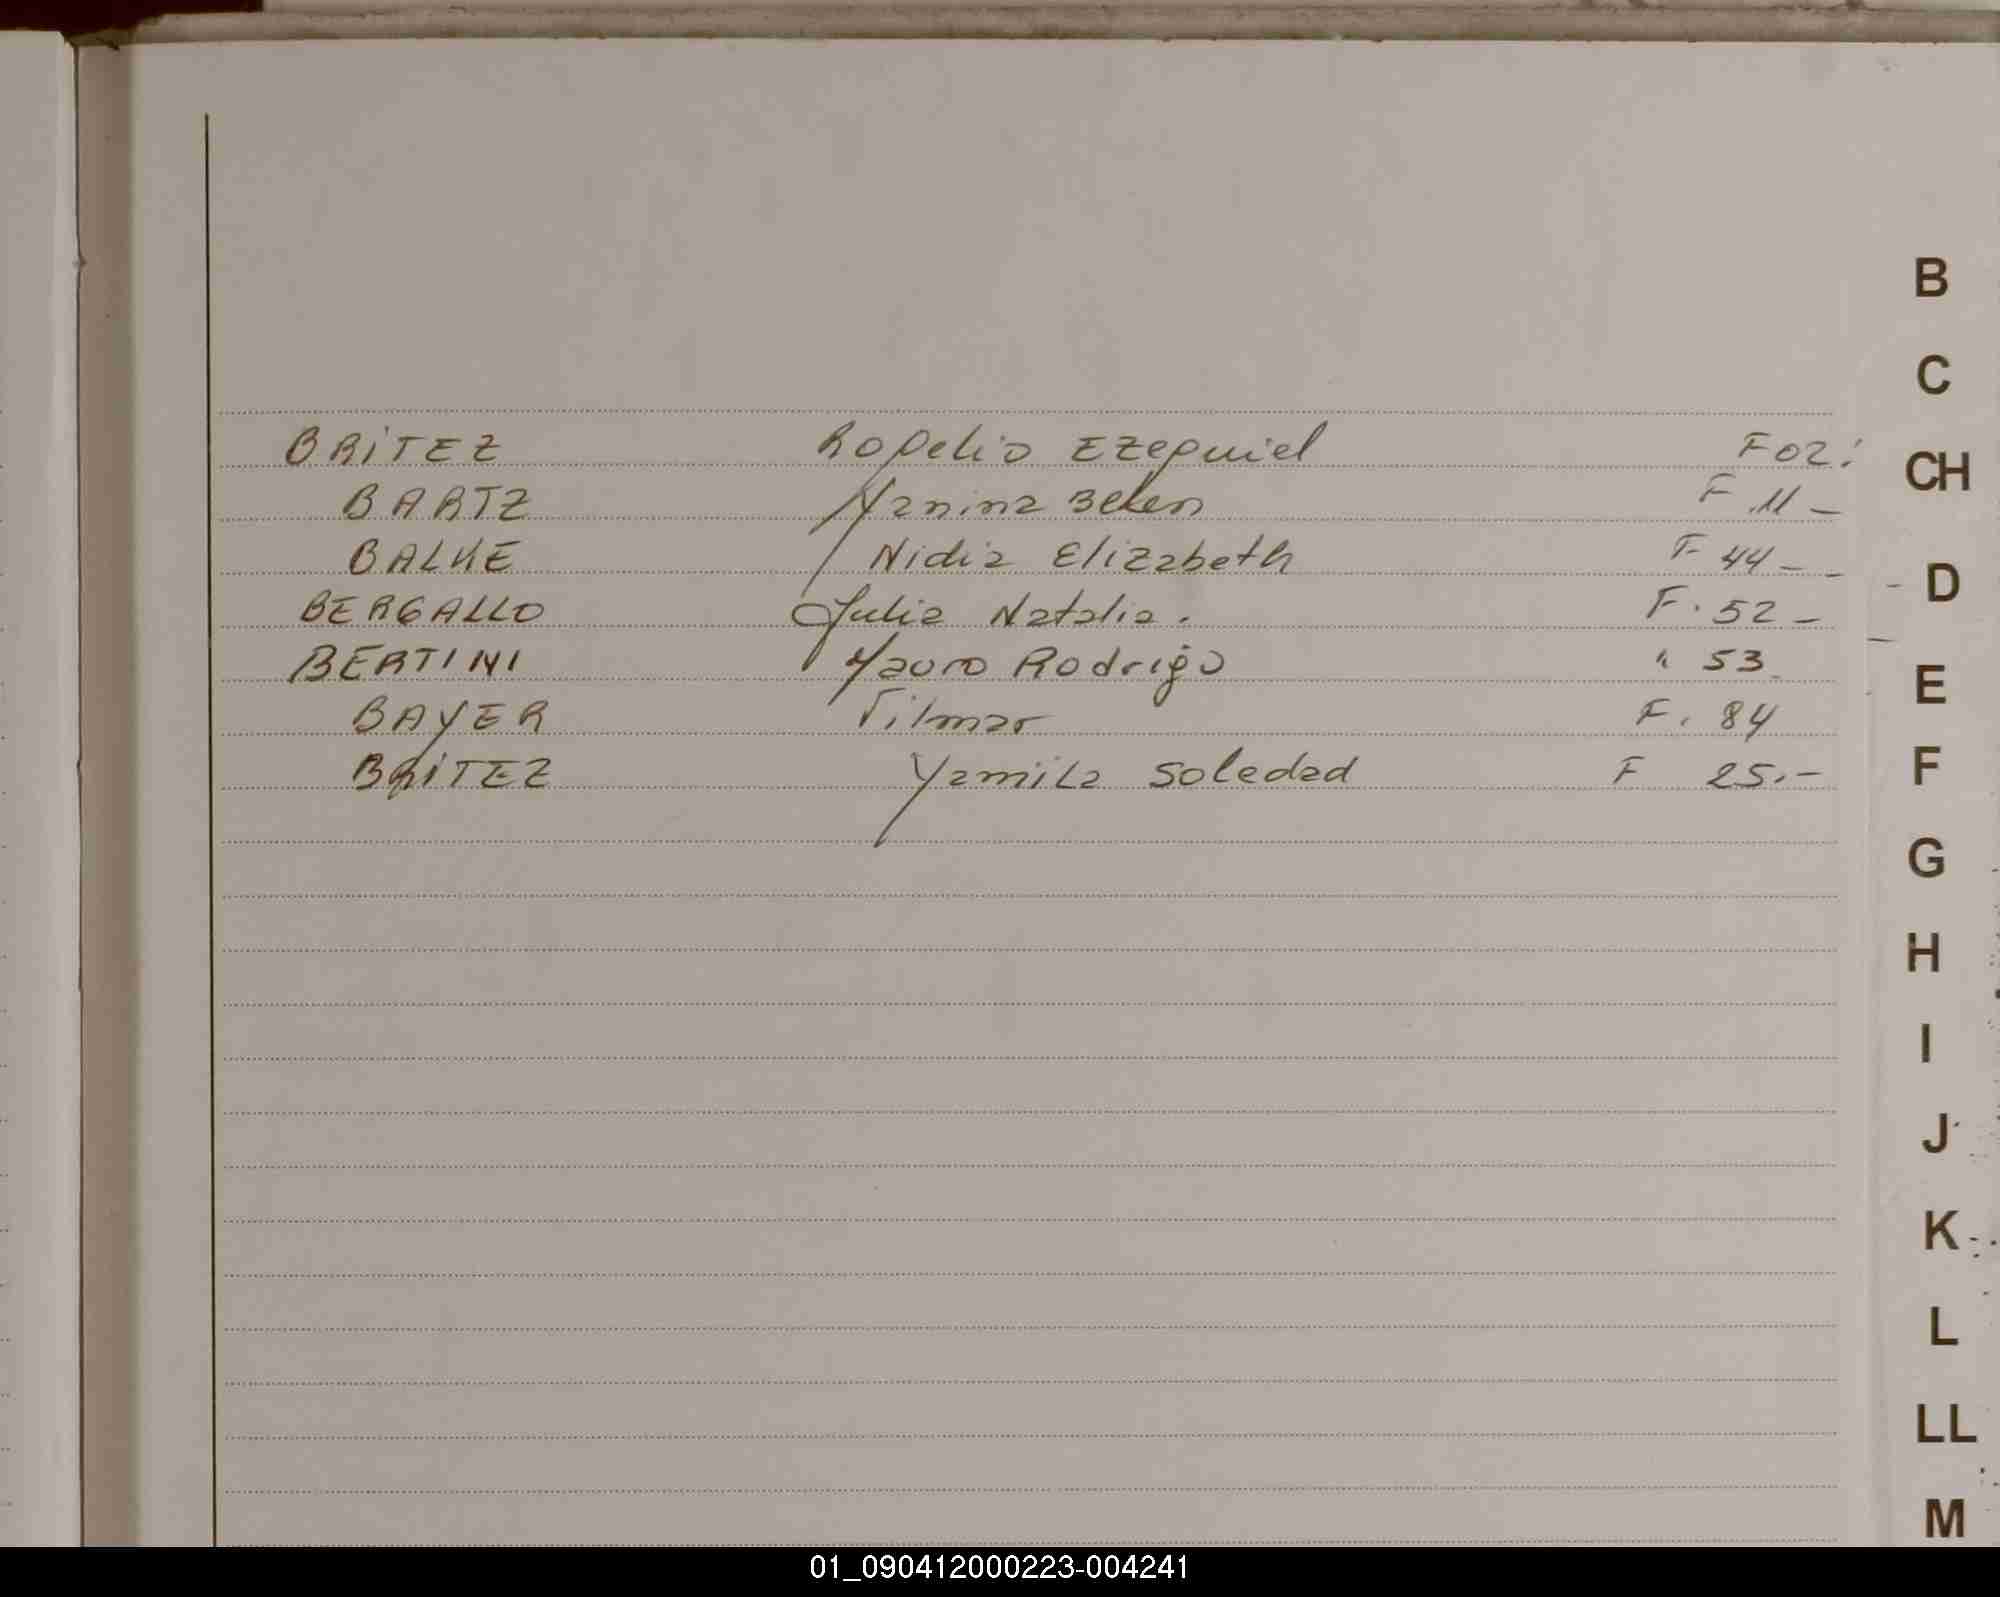 BRITEZ Rogelio Ezequiel F 02:
BARTZ Yanina Belen F. 11 -
BALKE Nidia Elizabeth F 44 - -
BERGALLO Julia Natalia. F. 52 -
BERTINI Mauro Rodrigo " 53
BAYER Vilmar F. 84
BRITEZ Yamila Soledad F 25.-
B
C
CH
D
E
F
G
H
I
J
K
L
LL
M
01_090412000223-004241